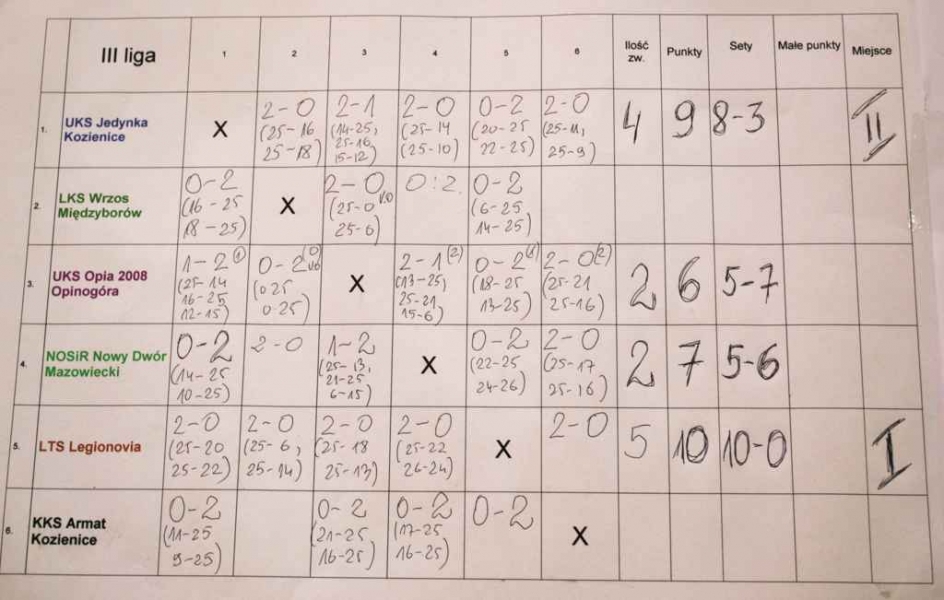 III liga 1 2 3 4 5 6 Ilość zw. Punkty Sety Małe punkty Miejsce
1. UKS Jedynka Kozienice
X
2-0
(25-16
25-18)
2-1
(14-25,
25-16,
15-12)
2-0
(25-14
(25-10)
0-2
(20-25
22-25)
2-0
(25-11,
25-9)
4 9 8-3 II
2. LKS Wrzos Międzyborów
0-2
(16-25
18-25)
X
2-0
(25-0
25-6)
0:2
0-2
(6-25
14-25)
3. UKS Opia 2008 Opinogóra
1-2 (1)
(25-14
16-25
12-15)
0-2
(0 25
0-25)
X
2-1 (2)
(13-25,
25-21,
15-6)
0-2
(18-25
13-25)
2-0 (2)
(25-21
25-16)
2 6 5-7
4. NOSiR Nowy Dwór Mazowiecki
0-2
(14-25
10-25)
2-0
1-2
(25-13,
21-25
6-15)
X
0-2
(22-25
24-26)
2-0
(25-17
25-16)
2 7 5-6
5. LTS Legionovia
2-0
(25-20
25-22)
2-0
(25-6,
25-14)
2-0
(25-18
25-13)
2-0
(25-22
26-24)
X
2-0
5 10 10-0 I
6. KKS Armat Kozienice
0-2
(11-25
9-25)
0-2
(21-25
16-25)
0-2
(17-25
16-25)
0-2
X